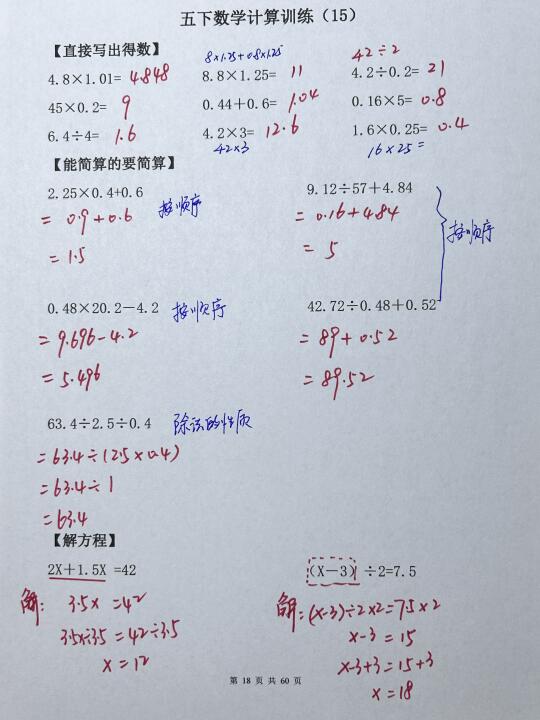 五下数学计算训练（15）
【直接写出得数】 8×1.25+0.8×1.25 42÷2
4.8×1.01= 4.848 8.8×1.25= 11 4.2÷0.2= 21
45×0.2= 9 0.44+0.6= 1.04 0.16×5= 0.8
6.4÷4= 1.6 4.2×3= 12.6 1.6×0.25= 0.4
42×3 16×25=
【能简算的要简算】
2.25×0.4+0.6 9.12÷57+4.84
= 0.9+0.6 按顺序 = 0.16+4.84
= 1.5 = 5 按顺序
0.48×20.2−4.2 按顺序 42.72÷0.48+0.52
= 9.696−4.2 = 89+0.52
= 5.496 = 89.52
63.4÷2.5÷0.4 除法的性质
=63.4÷(2.5×0.4)
=63.4÷1
=63.4
【解方程】
2X＋1.5X =42 （X－3） ÷2=7.5
解: 3.5x =42 解:(x-3)÷2×2=7.5×2
3.5x÷3.5 =42÷3.5 x-3 = 15
x=12 x-3+3=15+3
x=18
第 18 页 共 60 页